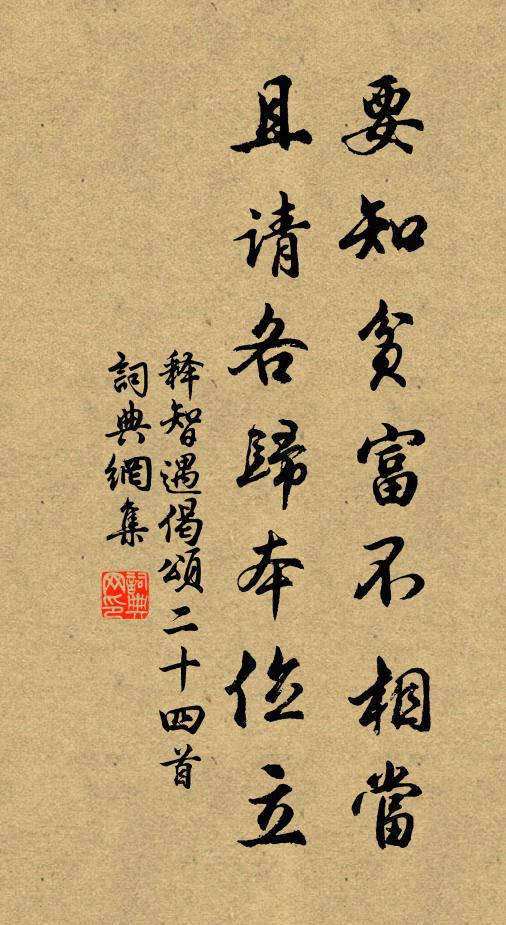 要知贫富不相當
且请各歸本位立
释智遇偈頌二十四首
詞典網集
詞典网印